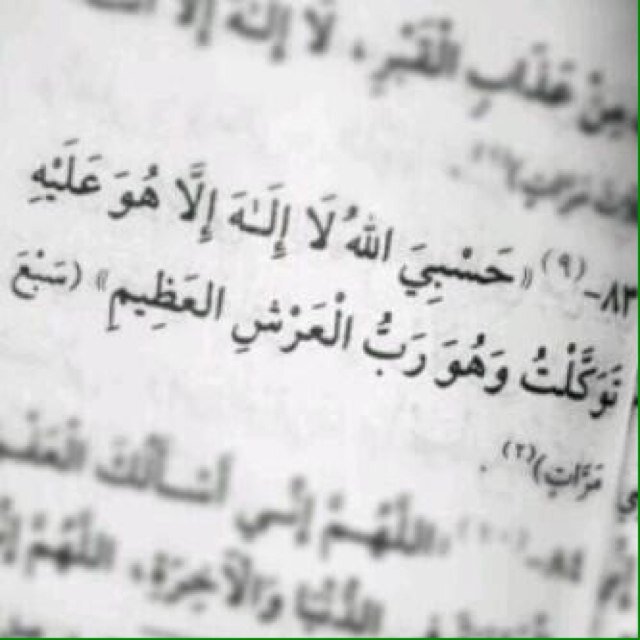 مِنْ عَذَابِ الْقَبْرِ، لَا إِلَهَ إِلَّا
٨٣-(٩) «حَسْبِيَ اللَّهُ لَا إِلَـٰهَ إِلَّا هُوَ عَلَيْهِ
تَوَكَّلْتُ وَهُوَ رَبُّ الْعَرْشِ العَظِيمِ» (سَبْعَ
مَرَّاتٍ)(٢).
٨٤-(١٠) «اللَّهُمَّ إِنِّي أَسْأَلُكَ
الدُّنْيَا وَالْآخِرَةِ، اللَّهُمَّ